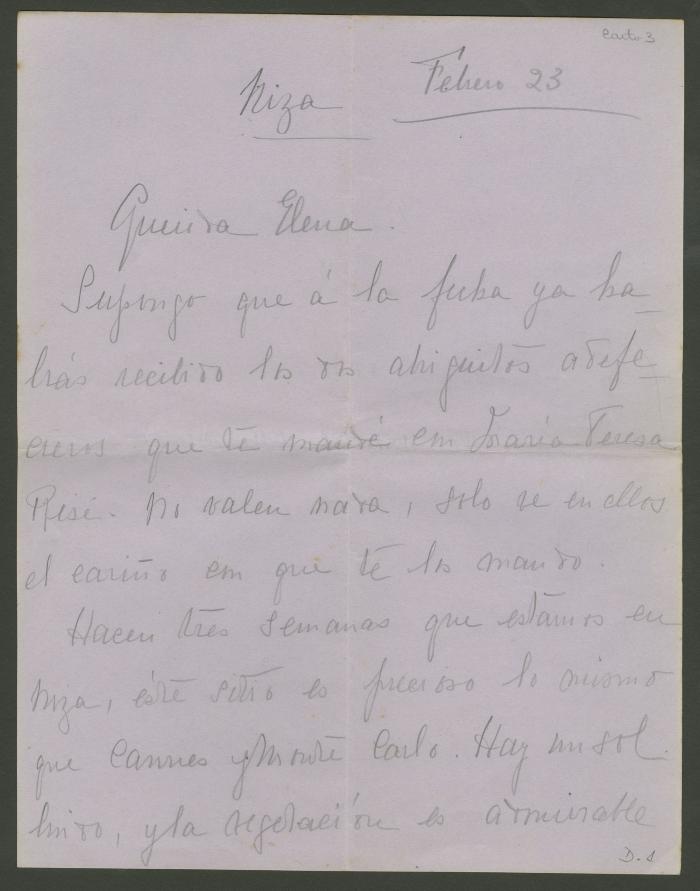 Carta 3
Niza Febrero 23
Querida Elena.
Supongo que á la fecha ya ha_
brás recibido los dos abriguitos
que te mandé con María Teresa
No valen nada, solo ve en ellos
el cariño con que te los mando.
Hacen tres semanas que estamos en
Niza, éste sitio es precioso lo mismo
que Cannes y Monte Carlo. Hay un sol
lindo, y la vegetación es admirable
D. 1